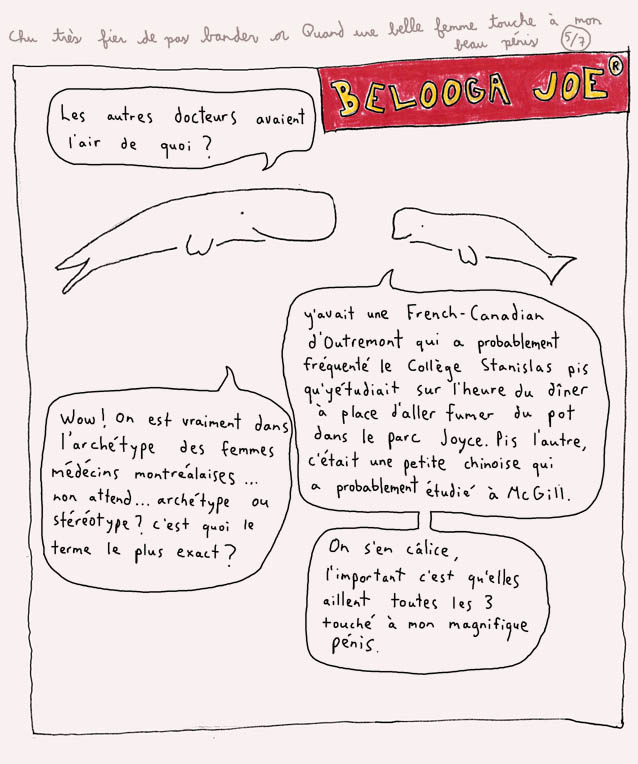 Chu très fier de pas bander or Quand une belle femme touche à mon
beau pénis 5/7
BELOOGA JOE®
Les autres docteurs avaient
l'air de quoi ?
y'avait une French-Canadian
d'Outremont qui a probablement
fréquenté le Collège Stanislas pis
qu'yétudiait sur l'heure du dîner
à place d'aller fumer du pot
dans le parc Joyce. Pis l'autre,
c'était une petite chinoise qui
a probablement étudié à McGill.
Wow! On est vraiment dans
l'archétype des femmes
médécins montréalaises ...
non attend... archétype ou
stéréotype? c'est quoi le
terme le plus exact?
On s'en câlice,
l'important c'est qu'elles
aillent toutes les 3
touché à mon magnifique
pénis.